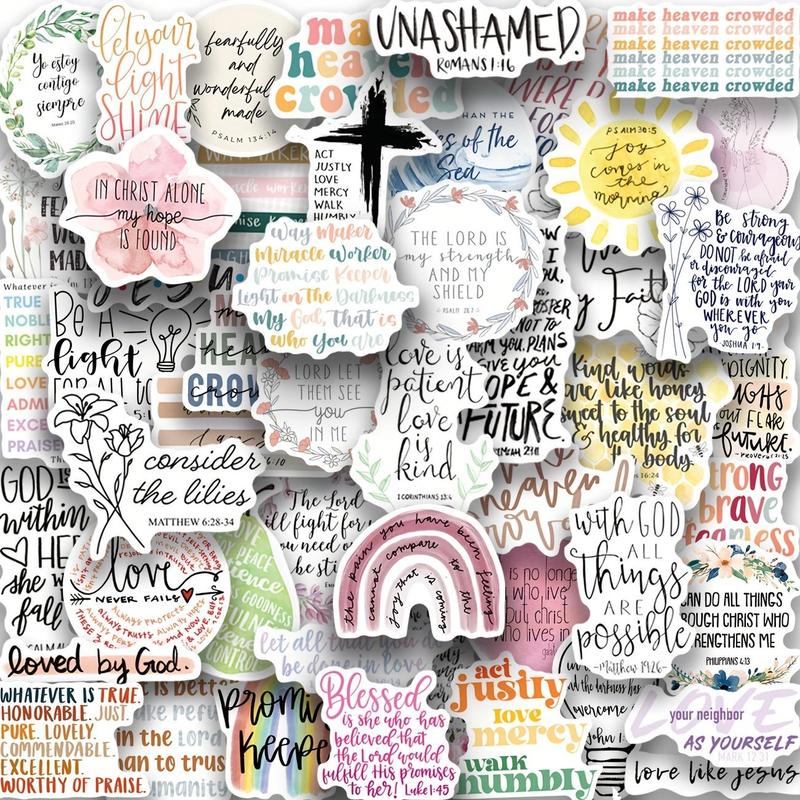 Yo estoy
contigo
siempre
let your
light
SHINE
fearfully
and
wonderfully
made
PSALM 139:14
ma
heaven
crowded
UNASHAMED.
ROMANS 1:16
make heaven crowded
make heaven crowded
make heaven crowded
make heaven crowded
make heaven crowded
make heaven crowded
IN CHRIST ALONE
my hope
IS FOUND
ACT
JUSTLY
LOVE
MERCY
WALK
HUMBLY
THAN THE
of the
Sea
PSALM 30:5
joy
comes in
the
morning
WAY MAKER
Way Maker
Miracle Worker
Promise Keeper
Light in the Darkness
my God, that is
who You are
THE LORD IS
my strength
AND MY
SHIELD
PSALM 28:7
Be strong
& courageous
DO NOT be afraid
or discouraged
for the LORD your
GOD is with you
WHEREVER
you go
JOSHUA 1:9
Whatever is
TRUE
NOBLE
RIGHT
PURE
LOVE
ADMI
EXCE
PRAISE
Be A
light
FOR ALL TO
LORD LET
THEM SEE
you
IN ME
love is
patient
love
is
kind
1 CORINTHIANS 13:4
NOT TO
HARM YOU, PLANS
Give you
HOPE &
FUTURE.
Kind words
are like honey
sweet to the soul
& healthy for
the body
16:24
DIGNITY.
future.
consider
the lilies
MATTHEW 6:28-34
GOD is
within
HER
she w
fall
love
NEVER FAILS
The Lord
will fight for
you need o
be sti
the pain you have been feeling
cannot compare to the
joy that is coming
heaven
with GOD
ALL
things
ARE
possible
-Matthew 19:26-
strong
brave
fearless
CAN DO ALL THINGS
THROUGH CHRIST WHO
STRENGTHENS ME
PHILIPPIANS 4:13
is no longer
who live,
but christ
who lives in
let all that you do
be done in love
loved by God.
WHATEVER IS TRUE.
HONORABLE. JUST.
PURE. LOVELY.
COMMENDABLE.
EXCELLENT.
WORTHY OF PRAISE.
is better
take refu
in the Lord
than to trus
humanity
Promi
keepe
Blessed
is she who has
believed that
the Lord would
fulfill His promises
to her! Luke 1:45
act
justly
love
mercy
walk
humbly
and the darkness has
overcome
John 1:
LOVE
your neighbor
AS YOURSELF
MARK 12:31
love like jesus